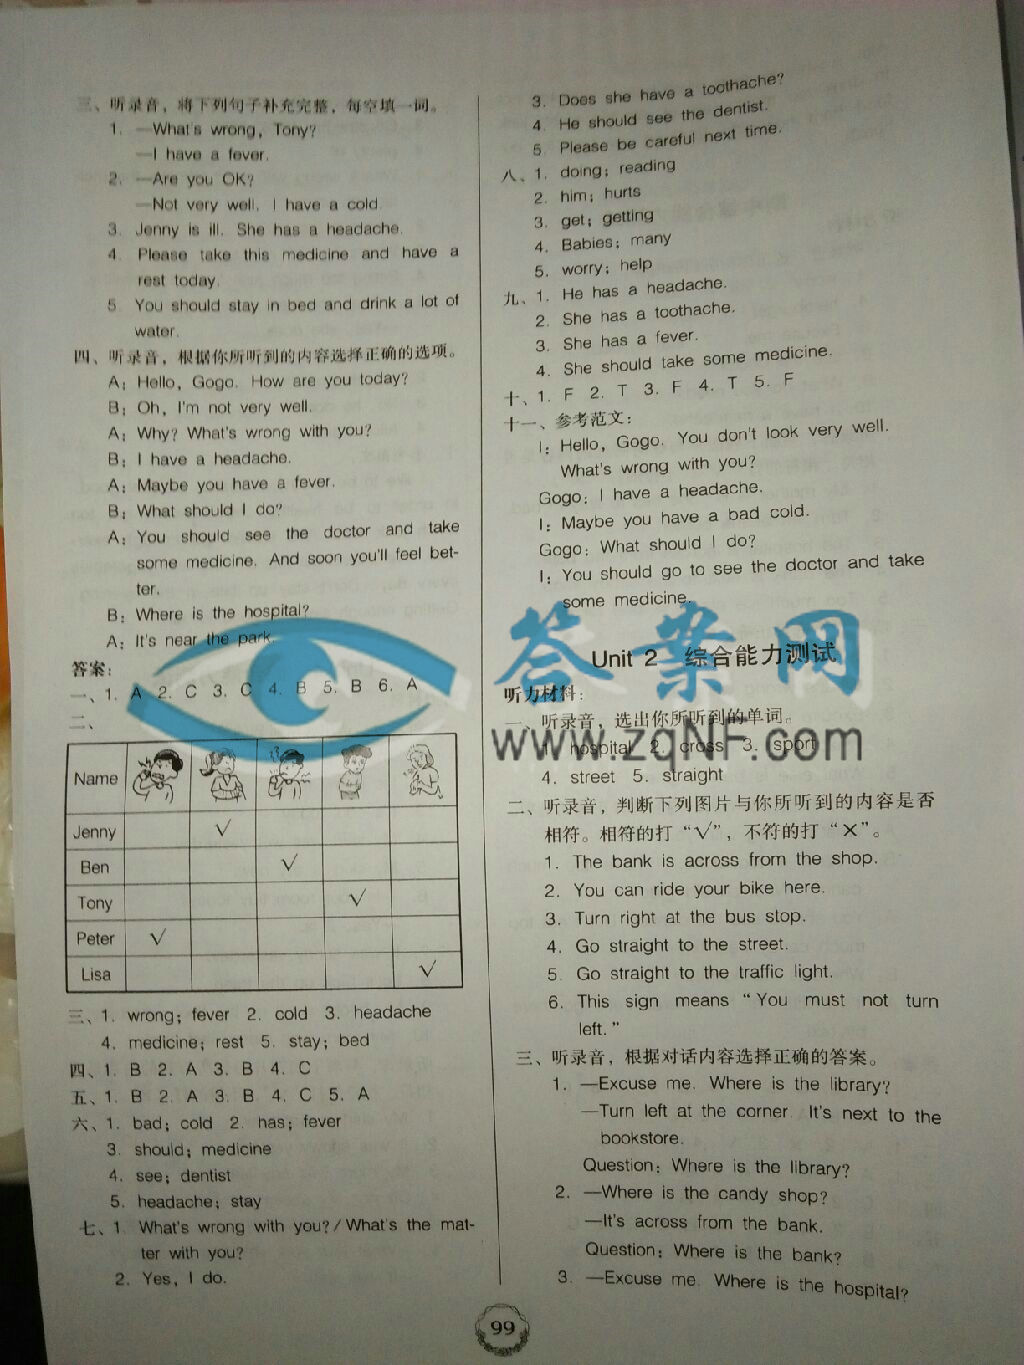 三、听录音，将下列句子补充完整，每空填一词。
1. —What's wrong, Tony?
—I have a fever.
2. —Are you OK?
—Not very well. I have a cold.
3. Jenny is ill. She has a headache.
4. Please take this medicine and have a
rest today.
5. You should stay in bed and drink a lot of
water.
四、听录音，根据你所听到的内容选择正确的选项。
A: Hello, Gogo. How are you today?
B: Oh, I'm not very well.
A: Why? What's wrong with you?
B: I have a headache.
A: Maybe you have a fever.
B: What should I do?
A: You should see the doctor and take
some medicine. And soon you'll feel bet-
ter.
B: Where is the hospital?
A: It's near the park.
答案:
一、1. A 2. C 3. C 4. B 5. B 6. A
二、
Name
Jenny √
Ben √
Tony √
Peter √
Lisa √
三、1. wrong; fever 2. cold 3. headache
4. medicine; rest 5. stay; bed
四、1. B 2. A 3. B 4. C
五、1. B 2. A 3. B 4. C 5. A
六、1. bad; cold 2. has; fever
3. should; medicine
4. see; dentist
5. headache; stay
七、1. What's wrong with you?/What's the mat-
ter with you?
2. Yes, I do.
3. Does she have a toothache?
4. He should see the dentist.
5. Please be careful next time.
八、1. doing; reading
2. him; hurts
3. get; getting
4. Babies; many
5. worry; help
九、1. He has a headache.
2. She has a toothache.
3. She has a fever.
4. She should take some medicine.
十、1. F 2. T 3. F 4. T 5. F
十一、参考范文:
I: Hello, Gogo. You don't look very well.
What's wrong with you?
Gogo: I have a headache.
I: Maybe you have a bad cold.
Gogo: What should I do?
I: You should go to see the doctor and take
some medicine.
答案网
www.zqNF.com
Unit 2 综合能力测试
听力材料:
一、听录音，选出你所听到的单词。
1. hospital 2. cross 3. sport
4. street 5. straight
二、听录音，判断下列图片与你所听到的内容是否
相符。相符的打“√”，不符的打“×”。
1. The bank is across from the shop.
2. You can ride your bike here.
3. Turn right at the bus stop.
4. Go straight to the street.
5. Go straight to the traffic light.
6. This sign means “You must not turn
left.”
三、听录音，根据对话内容选择正确的答案。
1. —Excuse me. Where is the library?
—Turn left at the corner. It's next to the
bookstore.
Question: Where is the library?
2. —Where is the candy shop?
—It's across from the bank.
Question: Where is the bank?
3. —Excuse me. Where is the hospital?
99